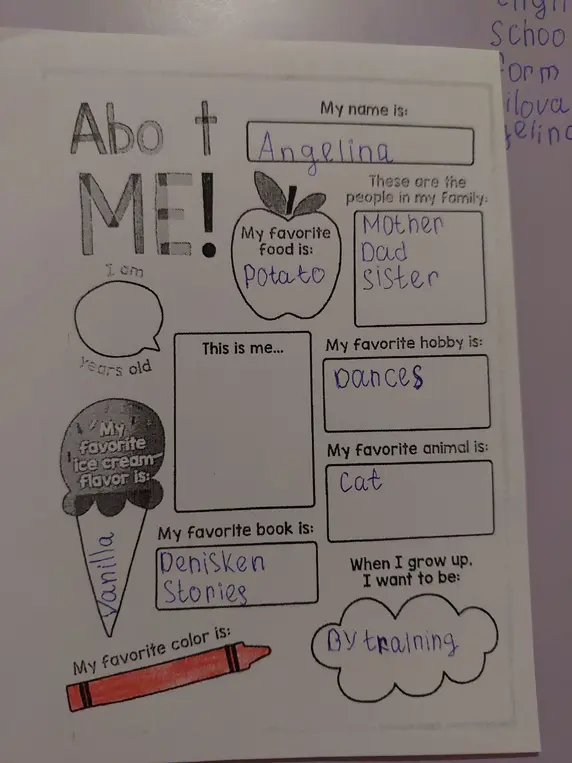 Abo t
ME!
My name is:
Angelina
These are the
people in my family:
Mother
Dad
Sister
My favorite
food is:
Potato
I am
years old
This is me...
My favorite hobby is:
Dances
My favorite
ice cream
flavor is:
Vanilla
My favorite animal is:
Cat
My favorite book is:
Denisken
Stories
When I grow up,
I want to be:
By training
My favorite color is:
Schoo
form
ilova